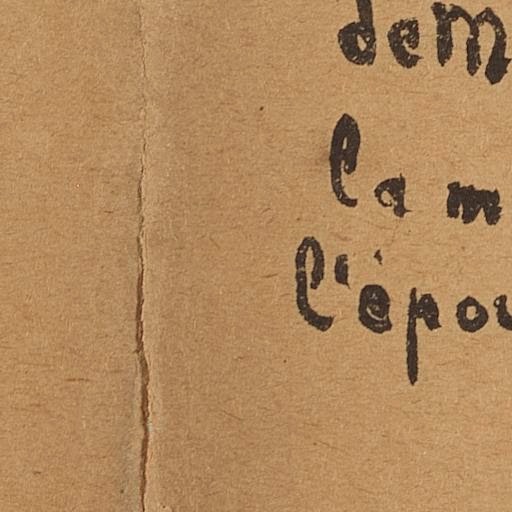 dem
la m
l'épou